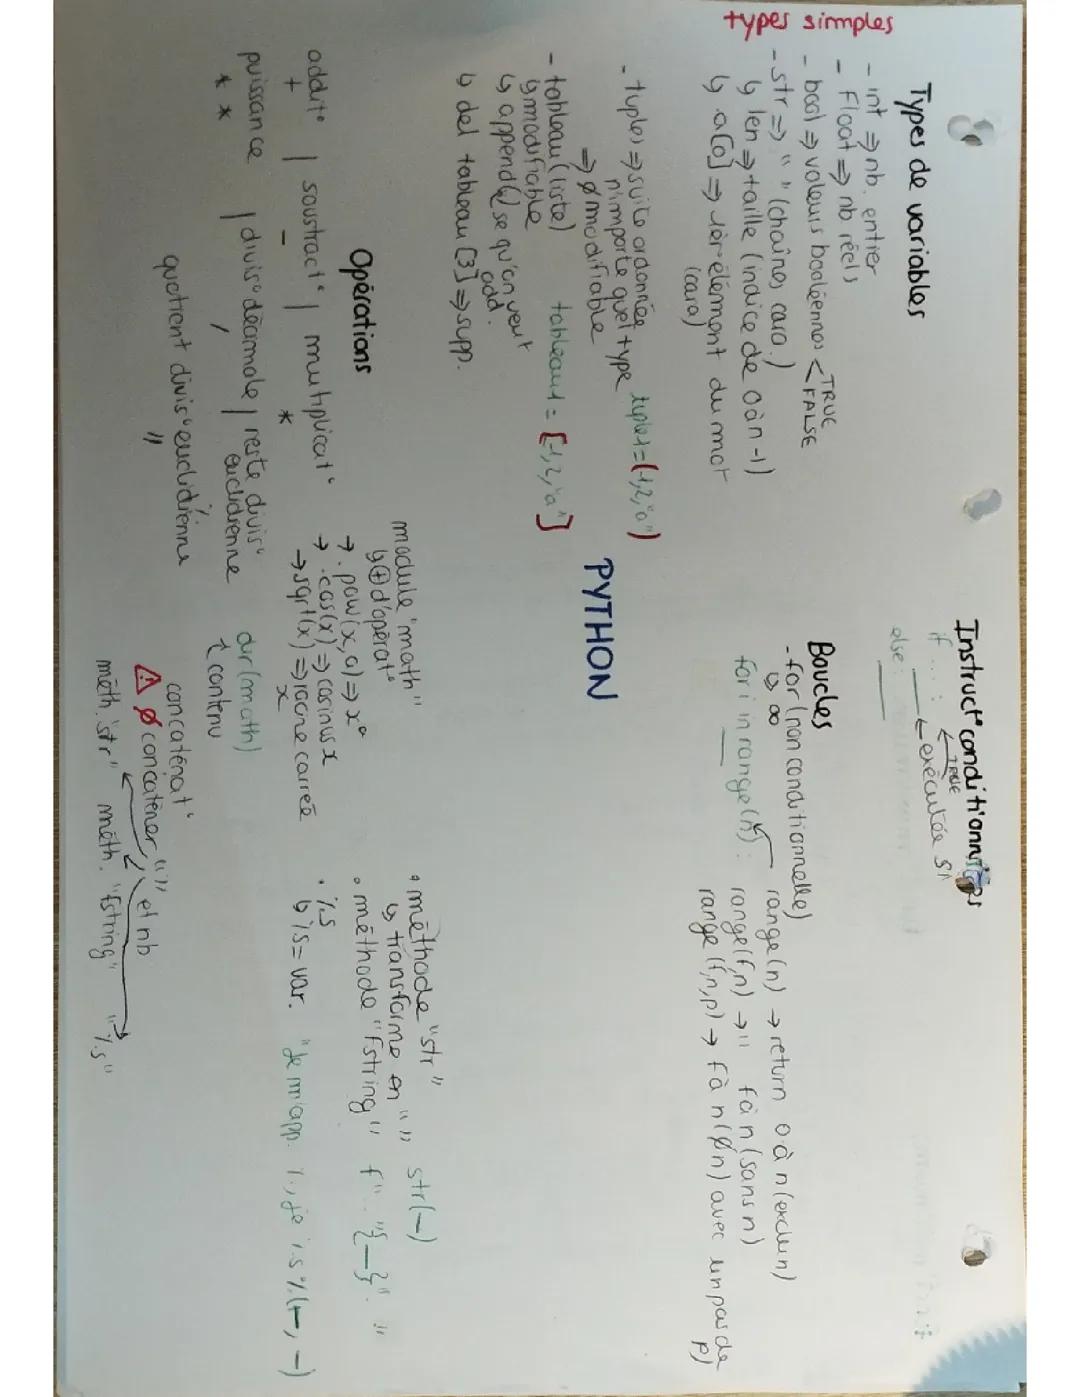 types simples
Types de variables
- int ⇒ nb. entier
- Float ⇒ nb réels
- bool ⇒ valeurs booléennes < TRUE
FALSE
- str ⇒ " " (chaînes cara.)
↳ len ⇒ taille (indice de 0 à n-1)
↳ a[0] ⇒ 1er élément du mot
(cara)
- tuples ⇒ suite ordonnée
n'importe quel type
⇒ ∅ modifiable
tuple1 = (1,2,"a")
- tableau (liste)
↳ modifiable
↳ append() se qu'on veut
add.
↳ del tableau [3] ⇒ supp.
tableau1 = [1,2,"a"]
PYTHON
Instruct° conditionnelles
if ... :
___ ← exécutée si
TRUE
else:
___
Boucles
- for (non conditionnelle)
↳ ∞
for i in range(n):
___
range(n) → return 0 à n (exclu n)
range(f,n) → " f à n (sans n)
range(f,n,p) → f à n (∅ n) avec un pas de
p)
Opérations
addit° | soustract° | multiplicat°
+ - *
puissance | divis° décimale | reste divis°
euclidienne
** / %
quotient divis° euclidienne
//
module "math"
↳ ⊕ d'opérat°
→ .pow(x,a) ⇒ xᵃ
→ .cos(x) ⇒ cosinus x
→ sqrt(x) ⇒ racine carrée
x
dir(math)
contenu
concaténat°
⚠ ∅ concaténer " " et nb
méth. "str" méth. "fstring" "%s"
• méthode "str"
↳ transforme en " " str(—)
• méthode "fstring" f"..."{—}". "
• %s
↳ %s = var. "Je m'app. %, je %s % (—, —)